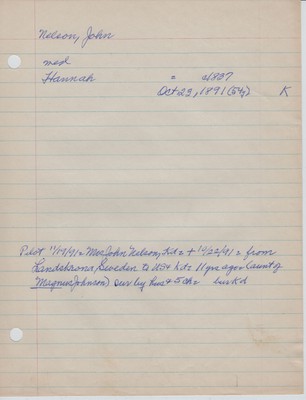 Nelson, John
med
Hannah = c1837
Oct 23, 1891 (54y) K
Pilot 11/19/91 = Mrs John Nelson, Kitz + 10/22/91 = from
Landskrona, Sweden to USA Kitz 11 yrs ago = (aunt of
Magnus Johnson) sur by hus + 5 ch = bur Kd